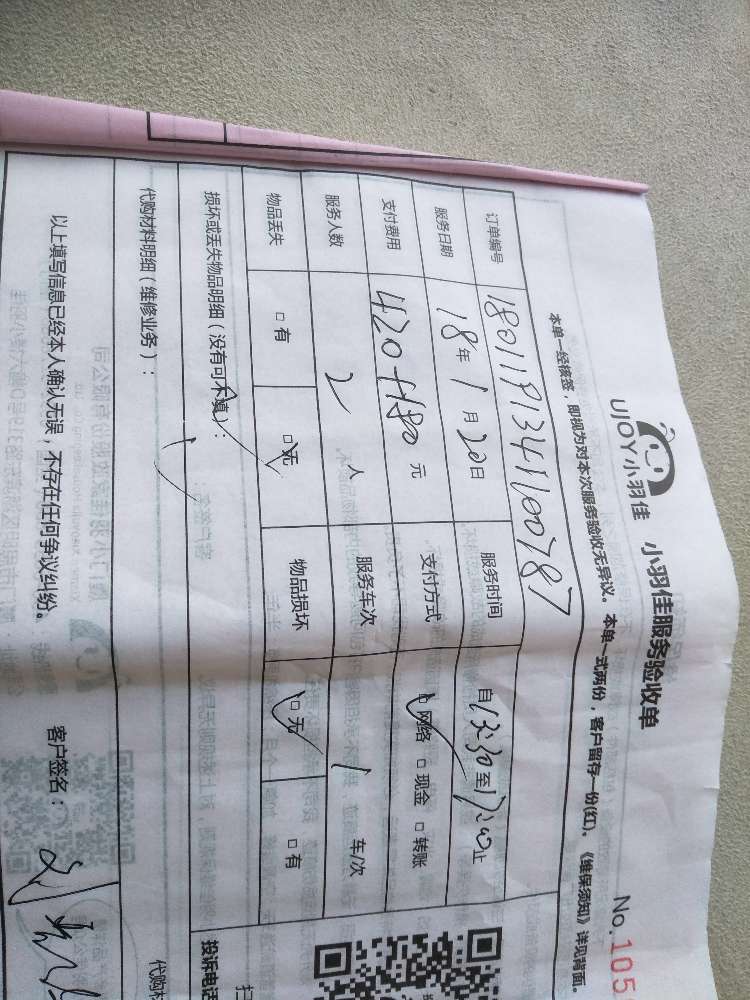 UJOY小羽佳 小羽佳服务验收单 No.105
本单一经核签,即视为对本次服务验收无异议。本单一式两份,客户留存一份(红)。《维保须知》详见背面。
订单编号 18011913411600787
服务日期 18年1月20日 服务时间 自 至 止
支付费用 420+180元 支付方式 网络 □现金 □转账
服务人数 2人 服务车次 1 车/次
物品丢失 □有 □无 物品损坏 □无 □有
损坏或丢失物品明细(没有可不填):
代购材料明细(维修业务):
代购材
以上填写信息已经本人确认无误,不存在任何争议纠纷。 客户签名:
投诉电话